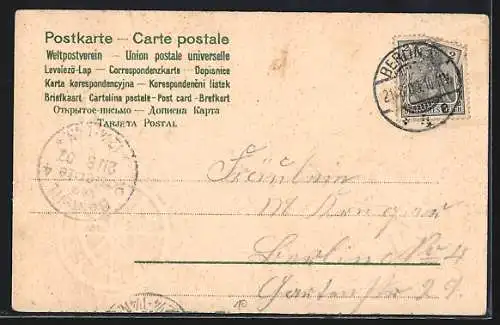 Postkarte – Carte postale
Weltpostverein – Union postale universelle
Levelező-Lap – Correspondenzkarte – Dopisnice
Karta korespondencyjna – Korespondenční lístek
Briefkaart – Cartolina postale – Post card – Brefkort
Открытое письмо – Дописна Карта
Tarjeta Postal
BERLIN
Fräulein
M Krüger
Berlin No 4
Gartenstr 29.
10